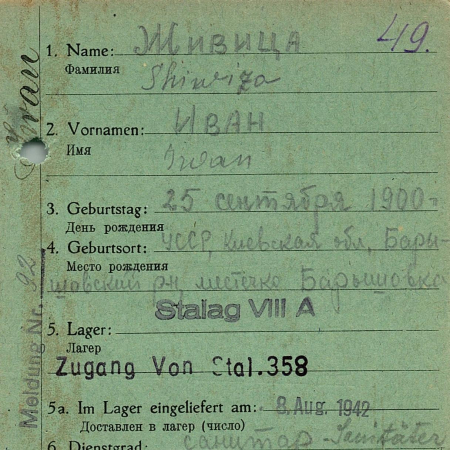 49.
1. Name: Живица
Фамилия Shiwiza
2. Vornamen: Иван
Имя Iwan
3. Geburtstag: 25 сентября 1900
День рождения
4. Geburtsort: УССР, Киевская обл, Бары-
Место рождения
шовский рн, местечко Барышовка
Stalag VIII A
5. Lager:
Лагерь
Zugang Von Stal.358
5a. Im Lager eingeliefert am: 8. Aug. 1942
Доставлен в лагер (число)
6. Dienstgrad: санитар - Sanitäter
Iwan
Meldung Nr. 92